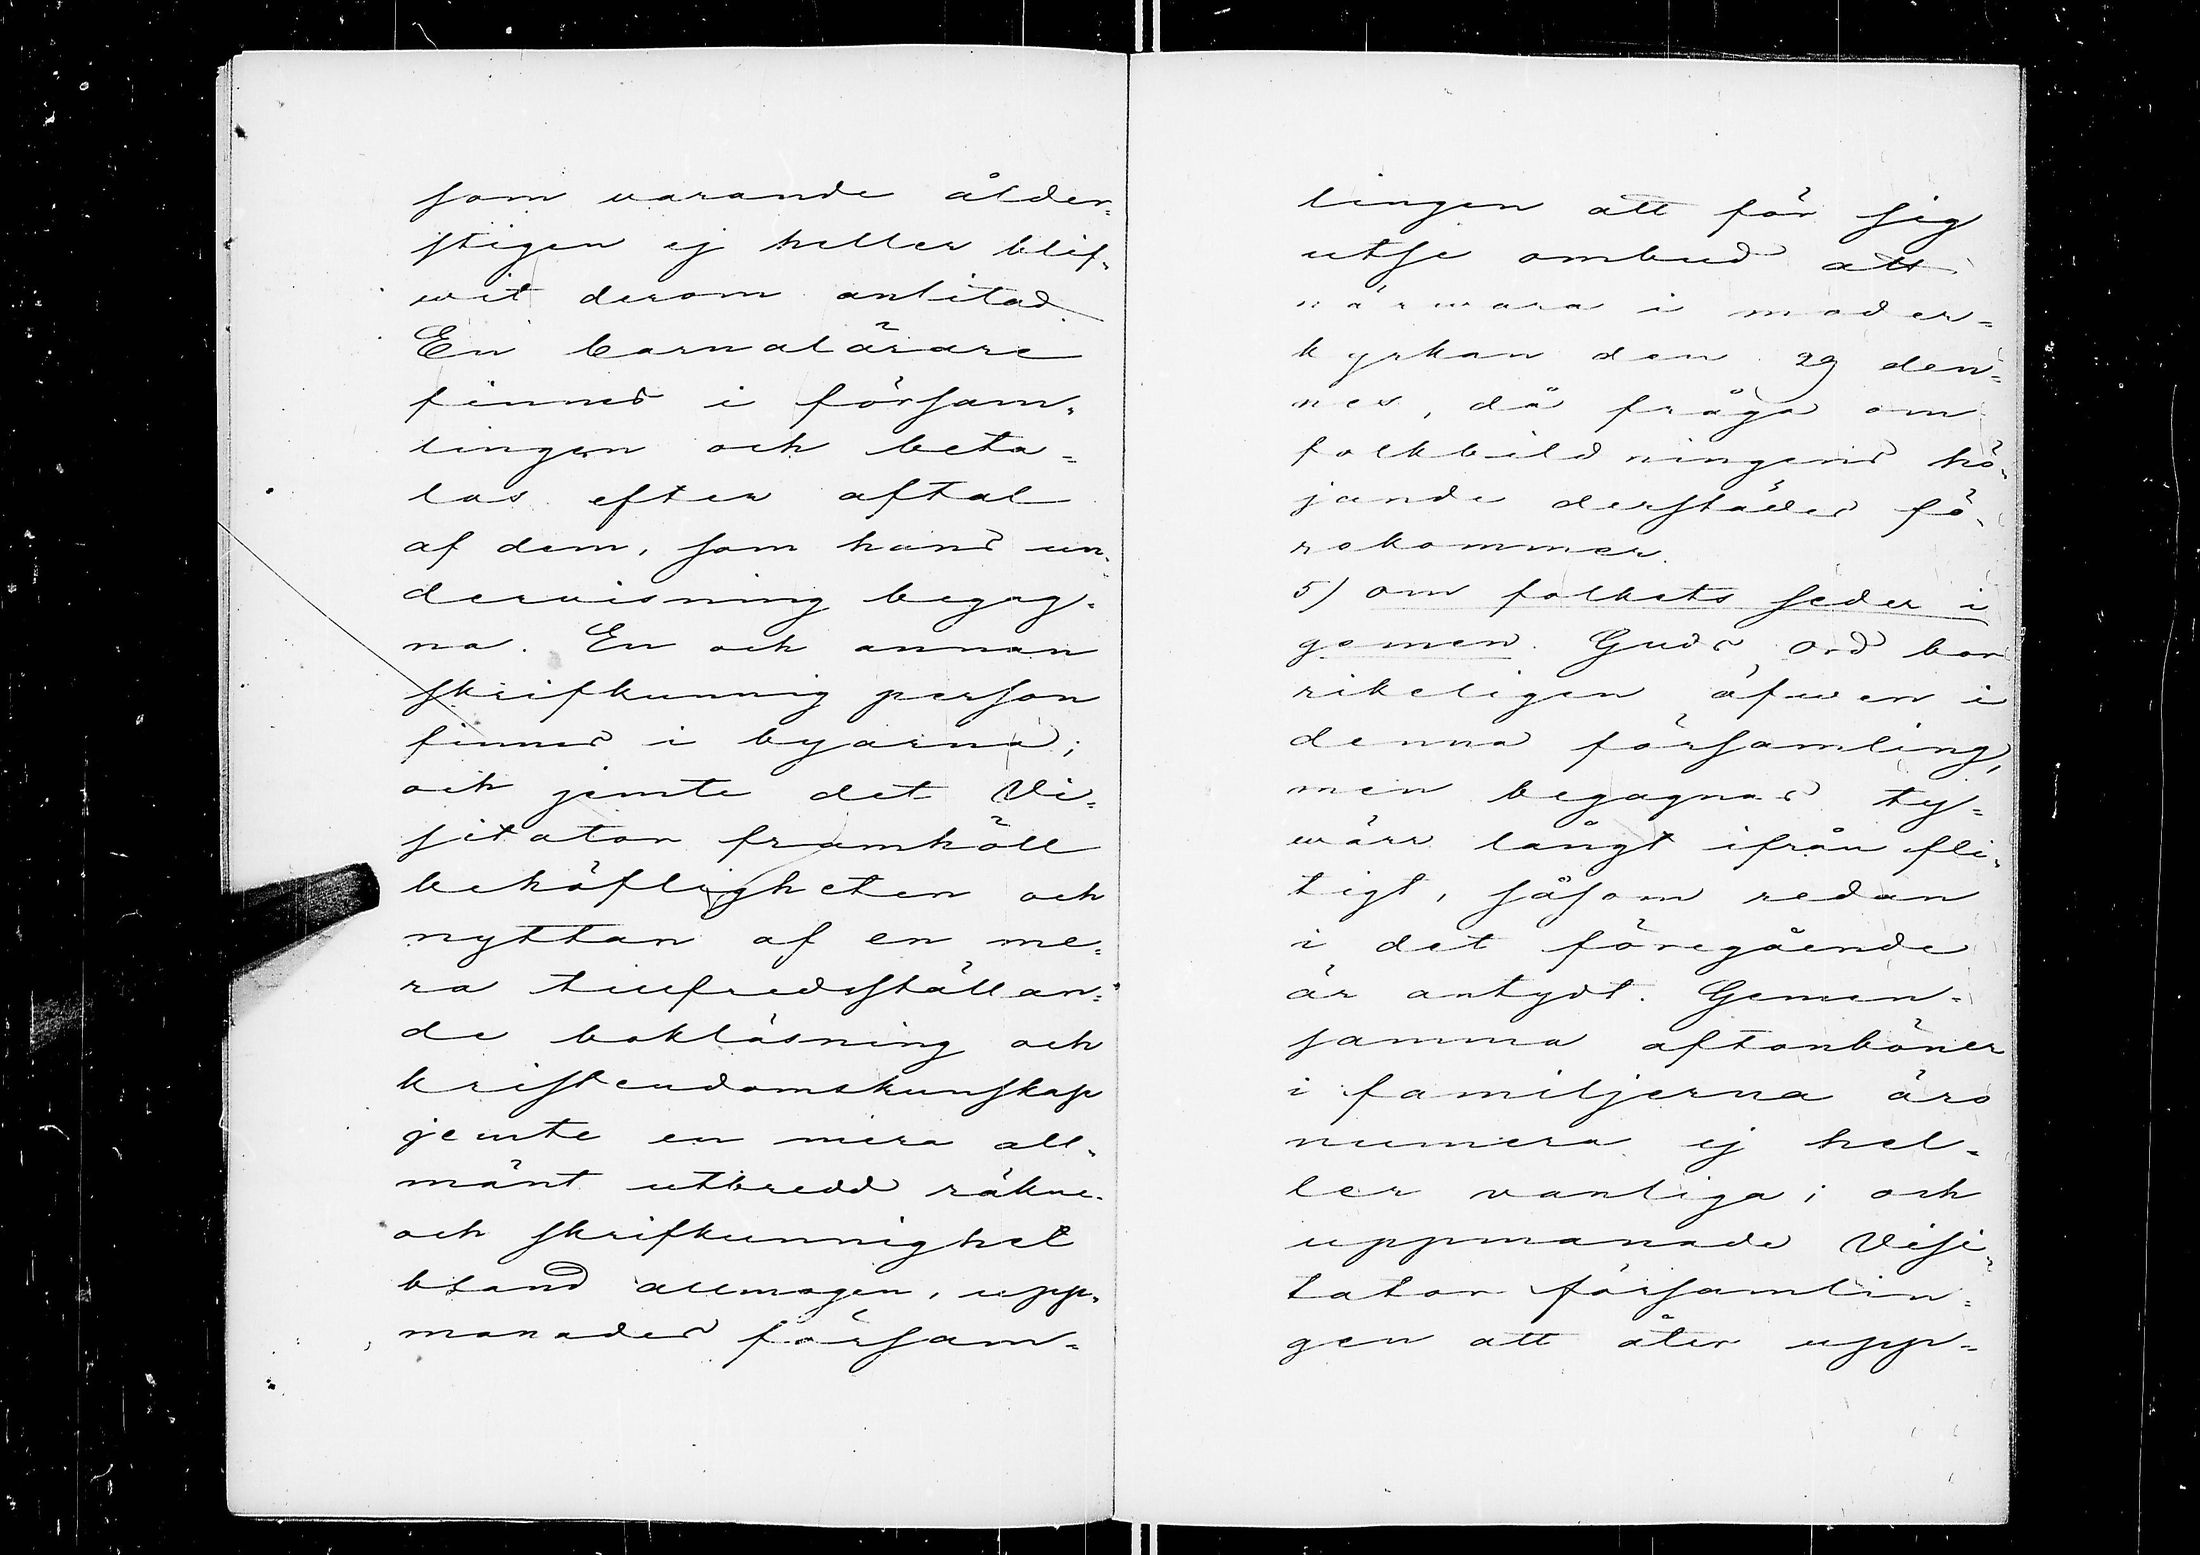 som varande ålder-
stigen ej heller blif-
wit derom anlitad.
En barnalärare
finnes i försam-
lingen och beta=
las efter aftal
af dem, som hans un-
dervisning begag-
na. En och annan
skrifkunnig person
finnes i byarna;
och jemte det Vi=
sitator framhöll
behöfligheten och
nyttan af en me=
ra tillfredsställan=
de bokläsning och
kristendomskunskap
jemte en mera all-
mänt utbredd räkne-
och skrifkunnighet
bland allmogen, upp-
manades försam=
lingen att för sig
utse ombud att
närwara i moder=
kyrkan den 29 den=
nes, då fråga om
folkbildningens hö-
jande derstädes fö-
rekommer.
5) om folkets seder i
gemen. Guds ord bor
rikeligen äfwen i
denna församling,
men begagnas ty=
wärr långt ifrån fli-
tigt, såsom redan
i det föregående
är antydt. Gemen-
samma aftonböner
i familjerna äro
numera ej hel-
ler vanliga; och
uppmanade Visi-
tator församlin=
gen att åter upp=